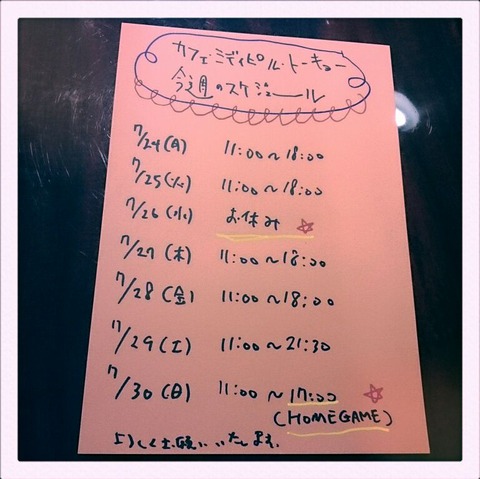 カフェ・ミディピル・トーキョー
今週のスケジュール
7/24(月) 11:00〜18:00
7/25(火) 11:00〜18:00
7/26(水) お休み
7/27(木) 11:00〜18:00
7/28(金) 11:00〜18:00
7/29(土) 11:00〜21:30
7/30(日) 11:00〜17:00
(HOMEGAME)
よろしくお願いいたします。